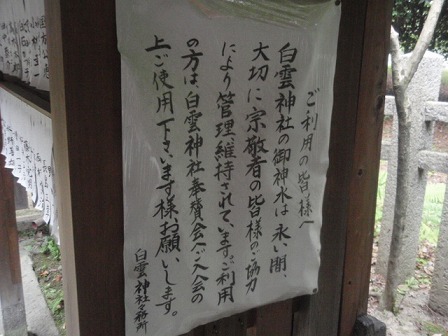 ご利用の皆様へ
白雲神社の御神水は、永い間、
大切に宗敬者の皆様のご協力
により管理、維持されています。ご利用
の方は、白雲神社奉賛会へご入会の
上ご使用下さいます様、お願いします。
白雲神社々務所